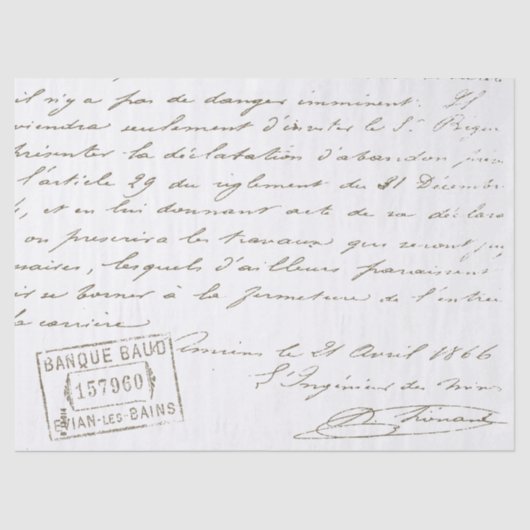 il n'y a pas de danger imminent. Il
viendra seulement d'inviter le Sr.
présenter la déclaration d'abandon
l'article 29 du règlement du 31 Décembr
et en lui donnant acte de sa déclara
on prescrira les travaux que seront
saires, lesquels d'ailleurs paraissent
se borner à la fermeture de l'entré
la carrière
Amiens le 21 Avril 1866
L'Ingénieur des mines
BANQUE BAUD
157960
EVIAN-LES-BAINS